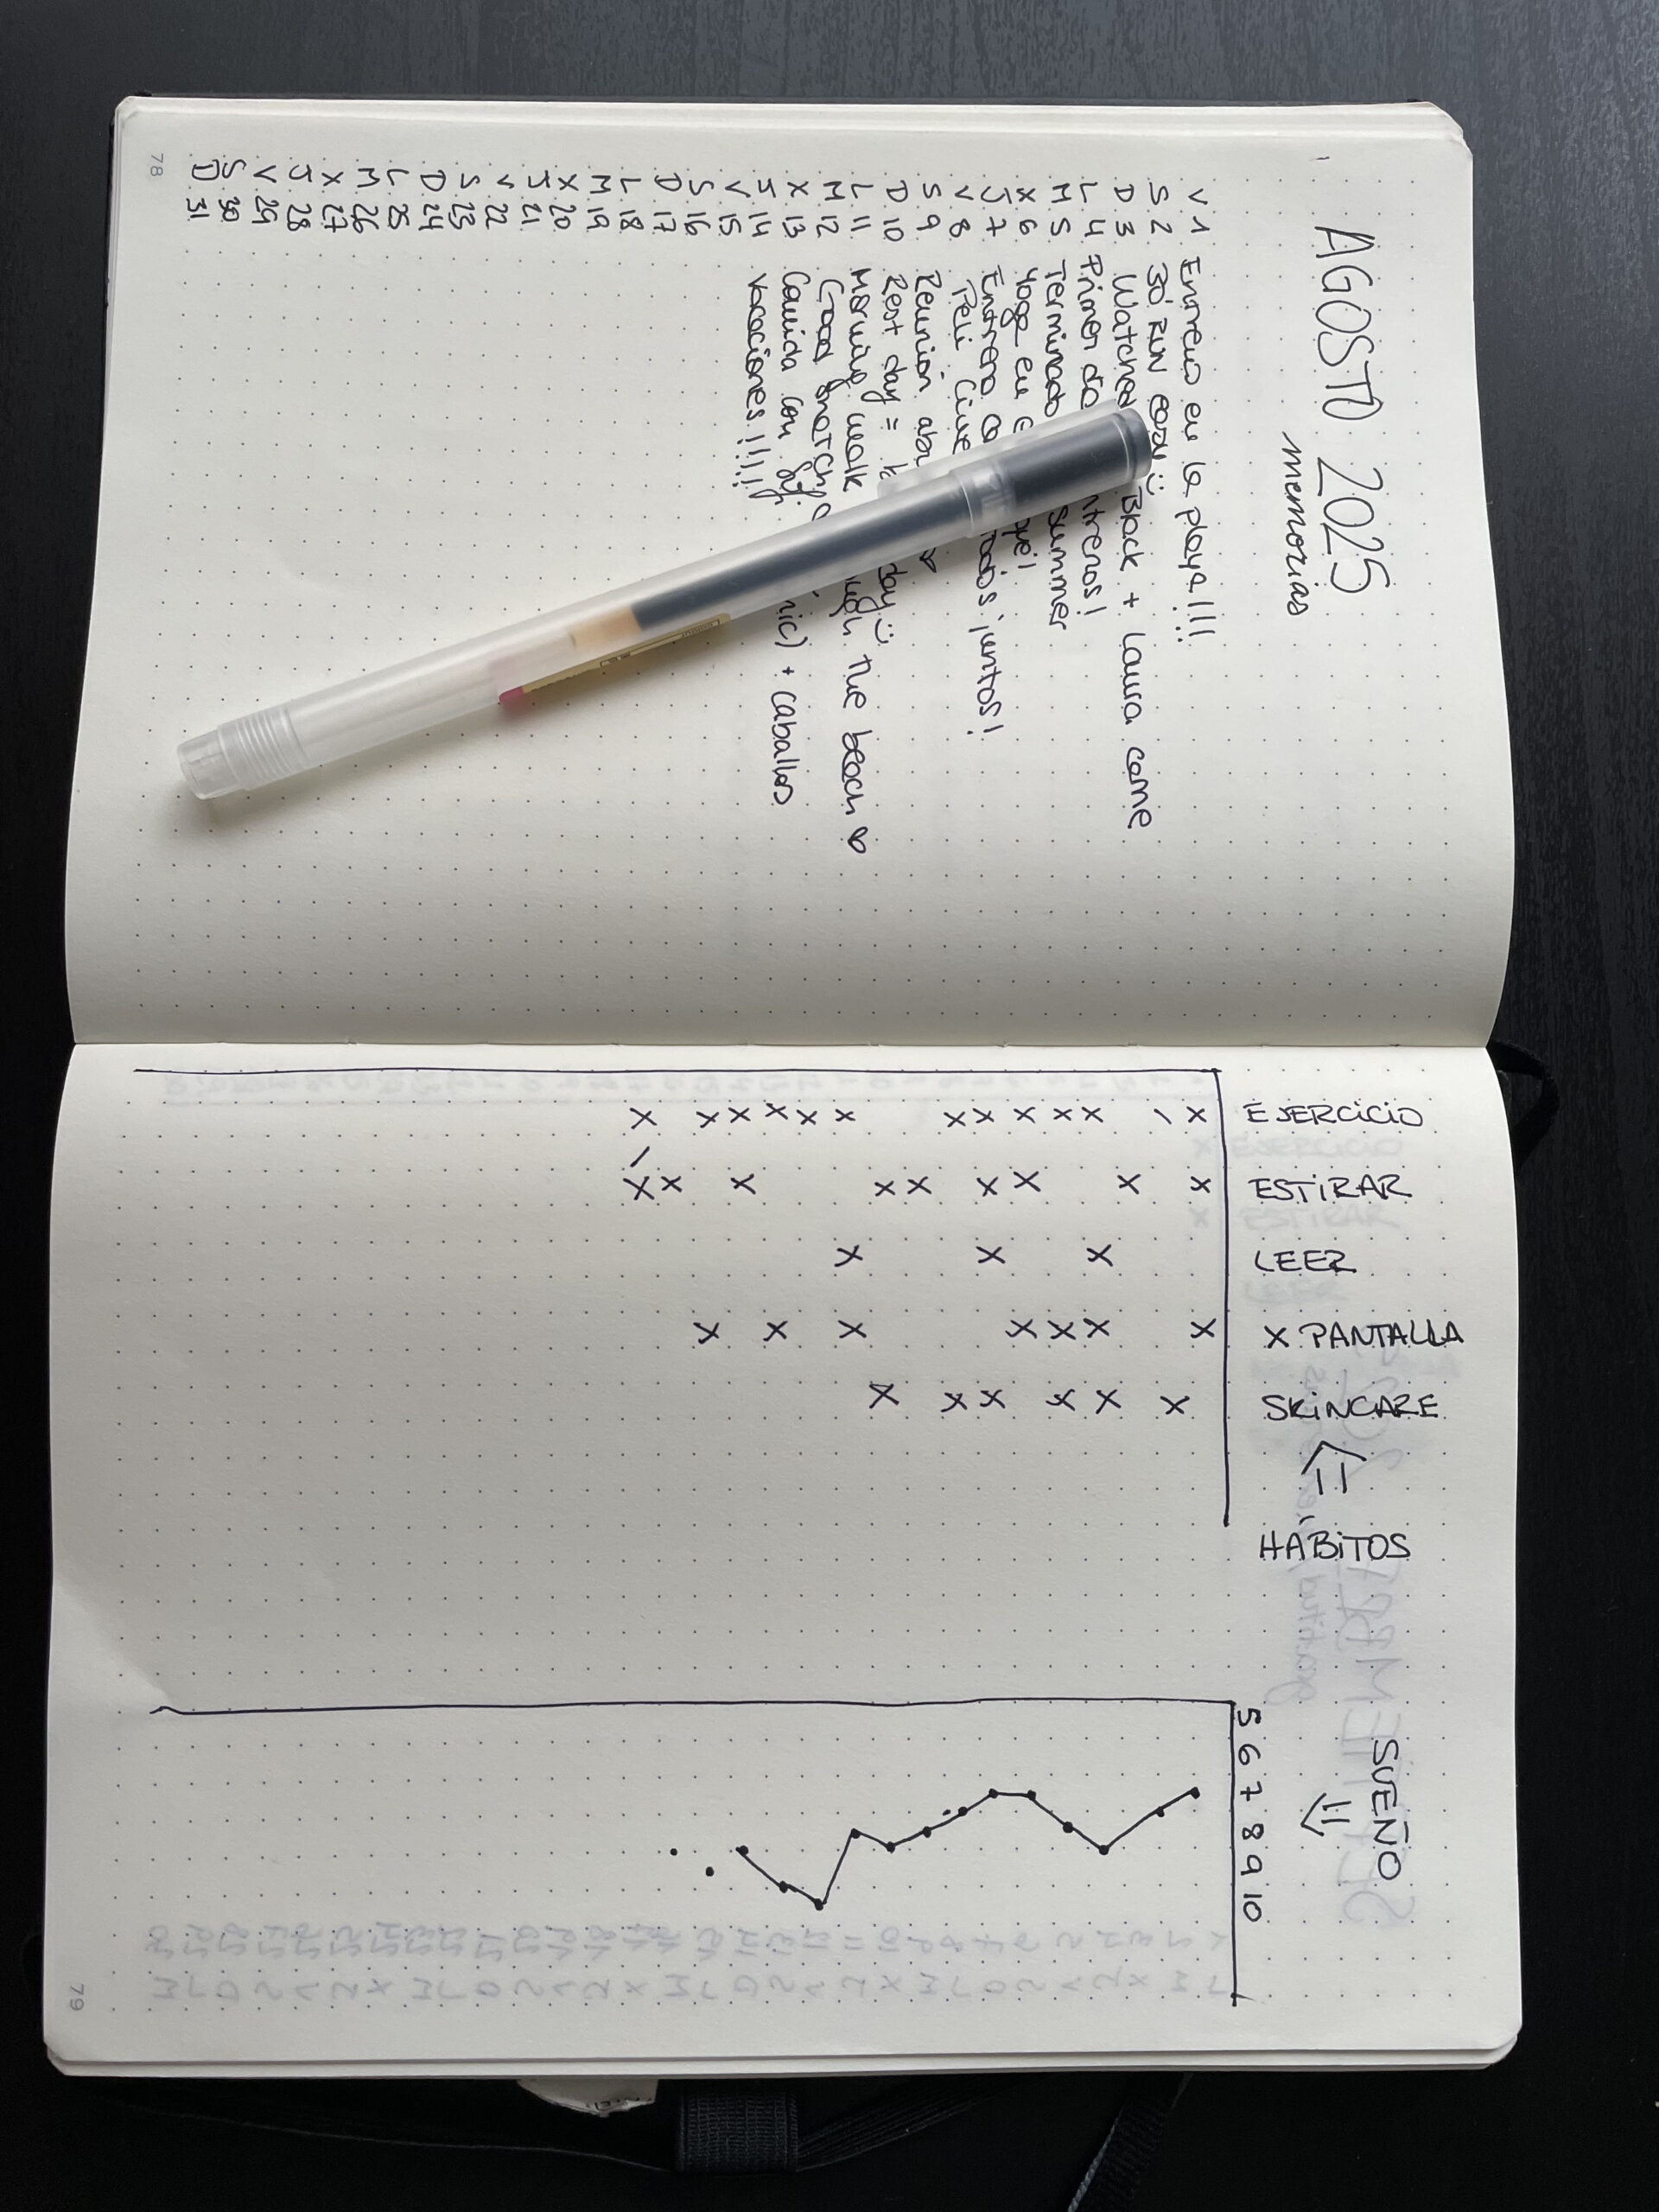 AGOSTO 2025
memorias
V 1 Entreno en la playa!!!!
S 2 30' RUN easy
D 3 Watched Black + Laura came
L 4 Primer día ntrenos!
M 5 Terminado summer
X 6 Yoga en
J 7 Entreno todos juntos!
V 8 Peli Cine
S 9 Reunion
D 10 Rest day = day
L 11 Morning walk the beach
M 12 Good snatch
X 13 Comida con + caballos
J 14 vacaciones!!!!!
V 15
S 16
D 17
L 18
M 19
X 20
J 21
V 22
S 23
D 24
L 25
M 26
X 27
J 28
V 29
S 30
D 31
78
EJERCICIO
ESTIRAR
LEER
X PANTALLA
SKINCARE
HÁBITOS
SUEÑO
5 6 7 8 9 10
79